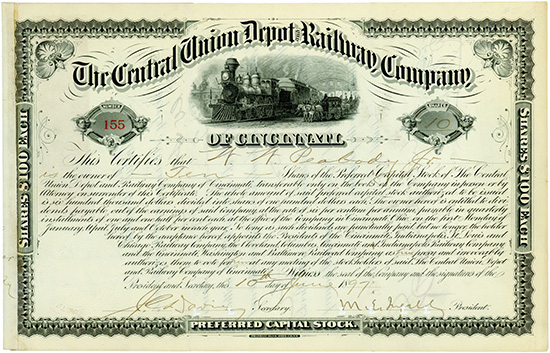 The Central Union Depot and Railway Company
OF CINCINNATI.
NUMBER
155
SHARES
10
SHARES $100 EACH
SHARES $100 EACH
This Certifies that W. W. Peabody Jr.
is the owner of Ten Shares of the Preferred Capital Stock of The Central
Union Depot and Railway Company of Cincinnati, transferable only on the books of the Company in person or by
Attorney on surrender of this Certificate. The whole amount of said preferred capital stock authorized to be issued
is six hundred thousand dollars divided into shares of one hundred dollars each. The owner hereof is entitled to div-
idends payable out of the earnings of said Company at the rate of six per centum per annum, payable in quarterly
installments of one and one half per cent each at the office of the Company in Cincinnati Ohio, on the first Monday of
January, April, July and October in each year. So long as such dividends are punctually paid the holder
hereof by the acceptance hereof appoints the Presidents of the Cincinnati, Indianapolis, St. Louis and
Chicago Railway Company, the Cleveland, Columbus, Cincinnati and Indianapolis Railway Company
and the Cincinnati, Washington and Baltimore Railroad Company his proxy and irrevocably
authorizes them to vote for at any meeting of the stockholders of said The Central Union Depot
and Railway Company of Cincinnati. Witness the seal of the company and the signatures of the
President and Secretary, this day of June 1897.
Secretary. M. E. Ingalls President.
PREFERRED CAPITAL STOCK.